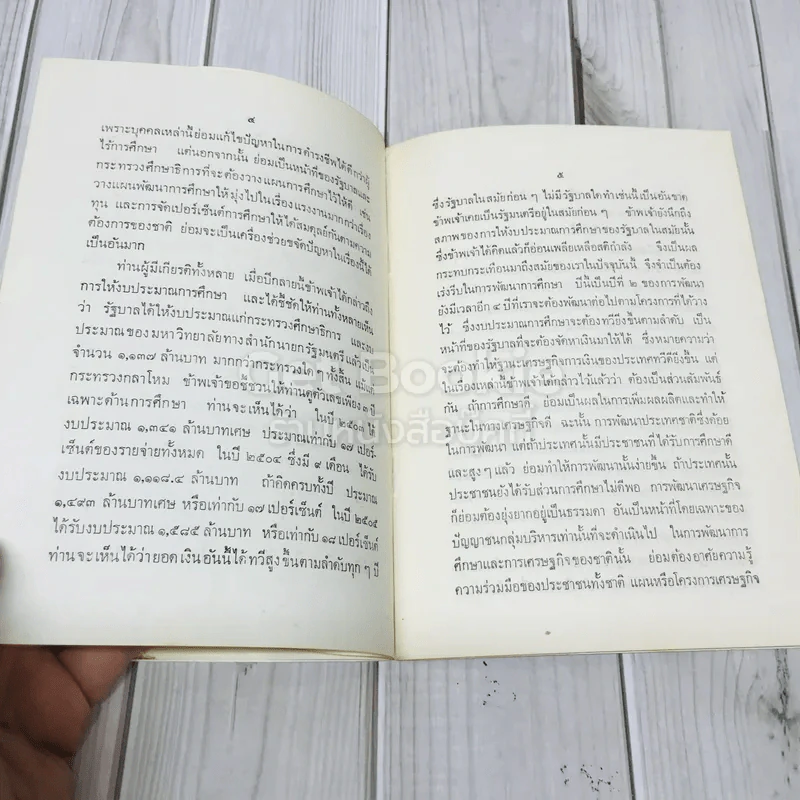 ๔
เพราะบุคคลเหล่านี้ย่อมแก้ไขปัญหาในการดำรงชีพได้ดีกว่าผู้
ไร้การศึกษา แต่นอกจากนั้น ย่อมเป็นหน้าที่ของรัฐบาลและ
กระทรวงศึกษาธิการที่จะต้องวางแผนการศึกษาไว้ให้ดี เช่น
วางแผนพัฒนาการศึกษาให้มุ่งไปในเรื่องแรงงานมากกว่าเรื่อง
ทุน และการจัดเปอร์เซ็นต์การศึกษาให้ได้สมดุลย์กันตามความ
ต้องการของชาติ ย่อมจะเป็นเครื่องช่วยขจัดปัญหาในเรื่องนี้ได้
เป็นอันมาก
ท่านผู้มีเกียรติทั้งหลาย เมื่อปีกลายนี้ข้าพเจ้าได้กล่าวถึง
การให้งบประมาณการศึกษา และได้ชี้ชัดให้ท่านทั้งหลายเห็น
ว่า รัฐบาลได้ให้งบประมาณแก่กระทรวงศึกษาธิการ และงบ
ประมาณของมหาวิทยาลัยทางสำนักนายกรัฐมนตรีแล้วเป็น
จำนวน ๑,๑๓๗ ล้านบาท มากกว่ากระทรวงใด ๆ ทั้งสิ้น แม้แต่
กระทรวงกลาโหม ข้าพเจ้าขอชี้ชวนให้ท่านดูตัวเลขเพียง ๓ ปี
เฉพาะด้านการศึกษา ท่านจะเห็นได้ว่า ในปี ๒๕๐๓ ได้
งบประมาณ ๑,๓๔๑ ล้านบาทเศษ ประมาณเท่ากับ ๑๗ เปอร์-
เซ็นต์ของรายจ่ายทั้งหมด ในปี ๒๕๐๔ ซึ่งมี ๙ เดือน ได้รับ
งบประมาณ ๑,๑๑๘.๔ ล้านบาท ถ้าคิดครบทั้งปี ประมาณ
๑,๔๙๓ ล้านบาทเศษ หรือเท่ากับ ๑๗ เปอร์เซ็นต์ ในปี ๒๕๐๕
ได้รับงบประมาณ ๑,๕๘๕ ล้านบาท หรือเท่ากับ ๑๘ เปอร์เซ็นต์
ท่านจะเห็นได้ว่ายอดเงินอันนี้ได้ทวีสูงขึ้นตามลำดับทุก ๆ ปี
๕
ซึ่งรัฐบาลในสมัยก่อน ๆ ไม่มีรัฐบาลใดทำเช่นนี้เป็นอันขาด
ข้าพเจ้าเคยเป็นรัฐมนตรีอยู่ในสมัยก่อน ๆ ข้าพเจ้ายังนึกถึง
สภาพของการให้งบประมาณการศึกษาของรัฐบาลในสมัยนั้น
ซึ่งข้าพเจ้าได้คิดแล้วก็อ่อนเพลียเหลือสติกำลัง ซึ่งเป็นผล
กระทบกระเทือนมาถึงสมัยของเราในปัจจุบันนี้ จึงจำเป็นต้อง
เร่งรีบในการพัฒนาการศึกษา ปีนี้เป็นปีที่ ๒ ของการพัฒนา
ยังมีเวลาอีก ๔ ปีที่เราจะต้องพัฒนาต่อไปตามโครงการที่ได้วาง
ไว้ ซึ่งงบประมาณการศึกษาจะต้องทวียิ่งขึ้นตามลำดับ เป็น
หน้าที่ของรัฐบาลที่จะต้องจัดหาเงินมาให้ได้ ซึ่งหมายความว่า
จะต้องทำให้ฐานะเศรษฐกิจการเงินของประเทศทวีดียิ่งขึ้น แต่
ในเรื่องเหล่านี้ข้าพเจ้าได้กล่าวไว้แล้วว่า ต้องเป็นส่วนสัมพันธ์
กัน ถ้าการศึกษาดี ย่อมเป็นผลในการเพิ่มผลผลิตและทำให้
ฐานะในทางเศรษฐกิจดี ฉะนั้น การพัฒนาประเทศชาติซึ่งด้อย
ในการพัฒนา แต่ถ้าประเทศนั้นมีประชาชนที่ได้รับการศึกษาดี
และสูง ๆ แล้ว ย่อมทำให้การพัฒนานั้นง่ายขึ้น ถ้าประเทศนั้น
ประชาชนยังได้รับส่วนการศึกษาไม่ดีพอ การพัฒนาเศรษฐกิจ
ก็ย่อมต้องยุ่งยากอยู่เป็นธรรมดา อันเป็นหน้าที่โดยเฉพาะของ
ปัญญาชนกลุ่มบริหารเท่านั้นที่จะดำเนินไป ในการพัฒนาการ
ศึกษาและการเศรษฐกิจของชาตินั้น ย่อมต้องอาศัยความรู้
ความร่วมมือของประชาชนทั้งชาติ แผนหรือโครงการเศรษฐกิจ